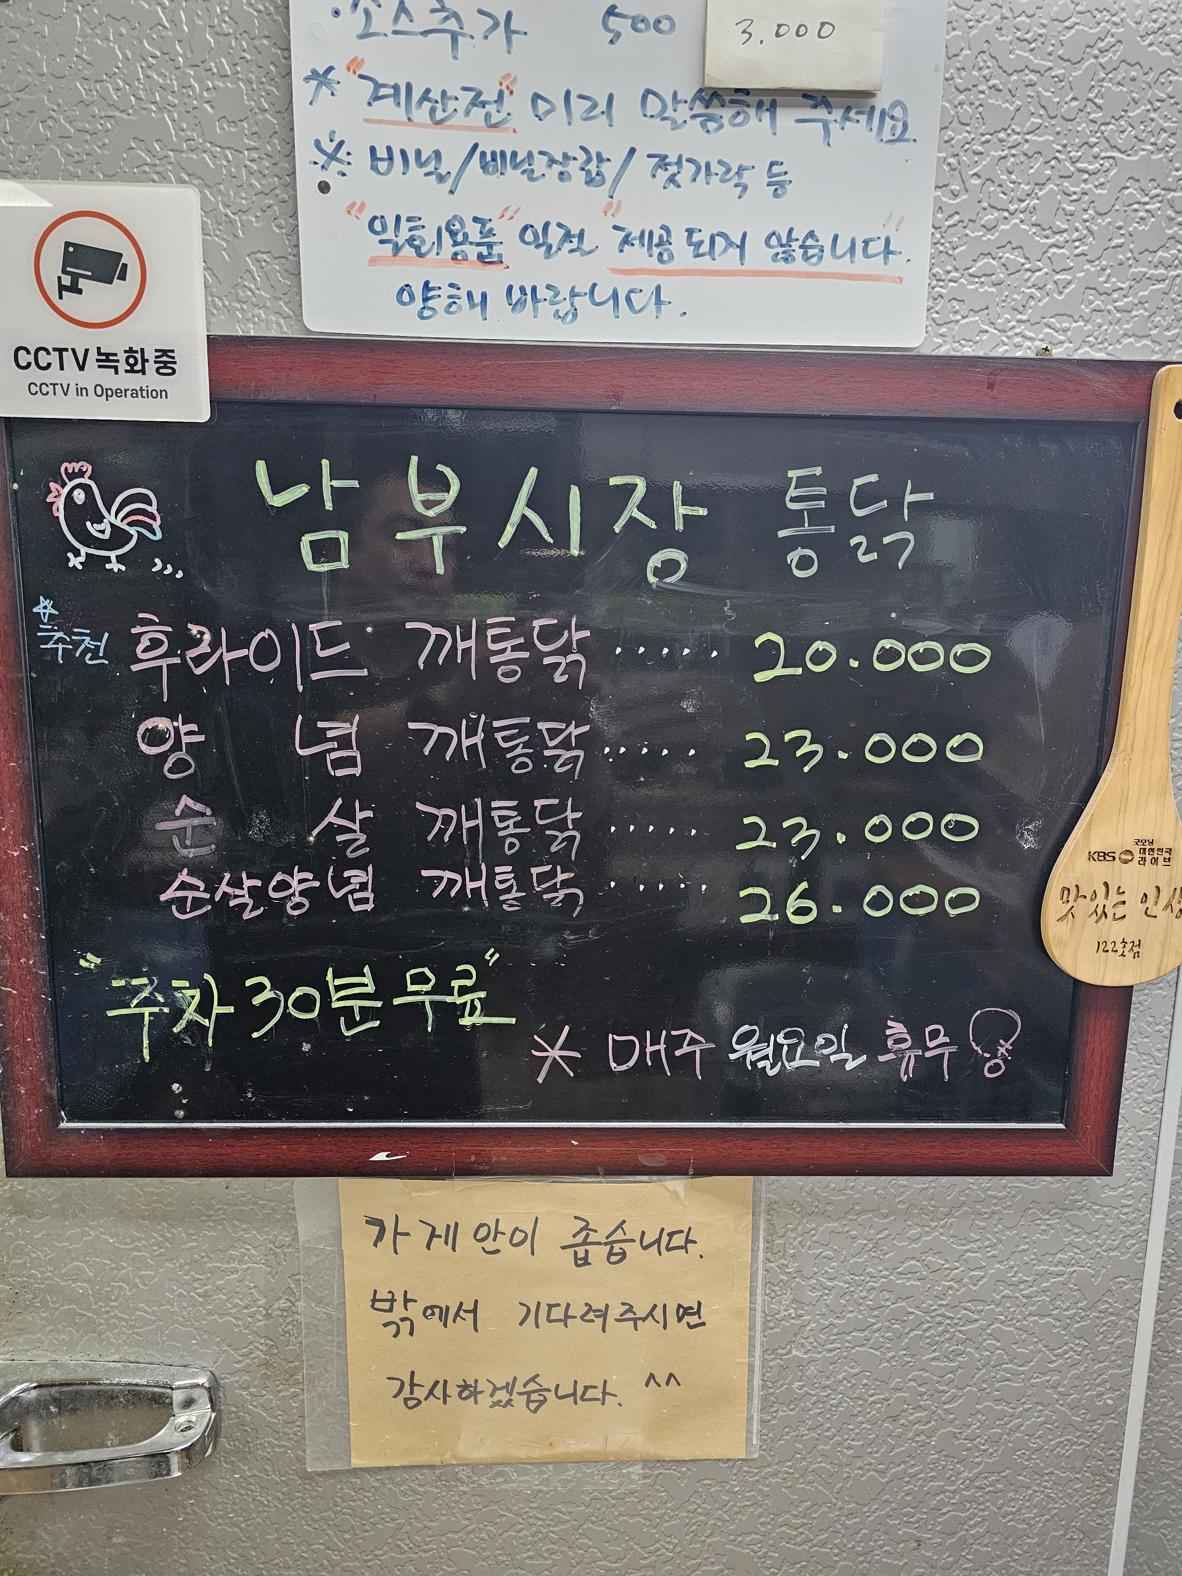 ·소스추가 500
3.000
* "계산전" 미리 말씀해 주세요
※ 비닐/비닐장갑/젓가락 등
"일회용품" 일절 "제공 되지 않습니다".
양해 바랍니다.
CCTV 녹화중
CCTV in Operation
남부시장 통닭
☆추천 후라이드 깨통닭 ····· 20.000
양 념 깨통닭 ····· 23.000
순 살 깨통닭 ····· 23.000
순살양념 깨통닭 ····· 26.000
"주차 30분 무료"
* 매주 월요일 휴무!
KBS 굿모닝 대한민국 라이브
맛있는 인생
122호점
가게 안이 좁습니다.
밖에서 기다려주시면
감사하겠습니다. ^^